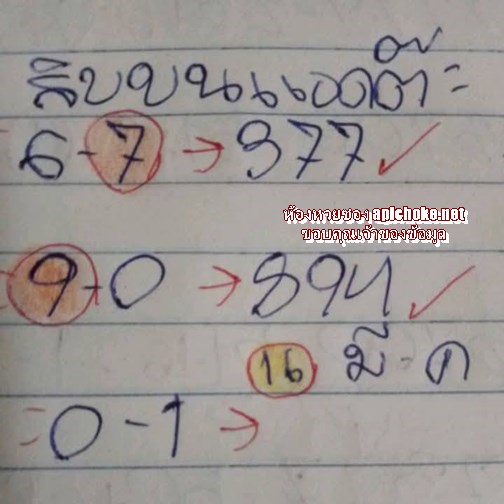 สิบบนแอดต๊ะ
6-7 → 377 ✓
ห้องหวยซอง aplchoke.net
ขอบคุณเจ้าของข้อมูล
9-0 → 894 ✓
16 มี-ค
=0-1 →